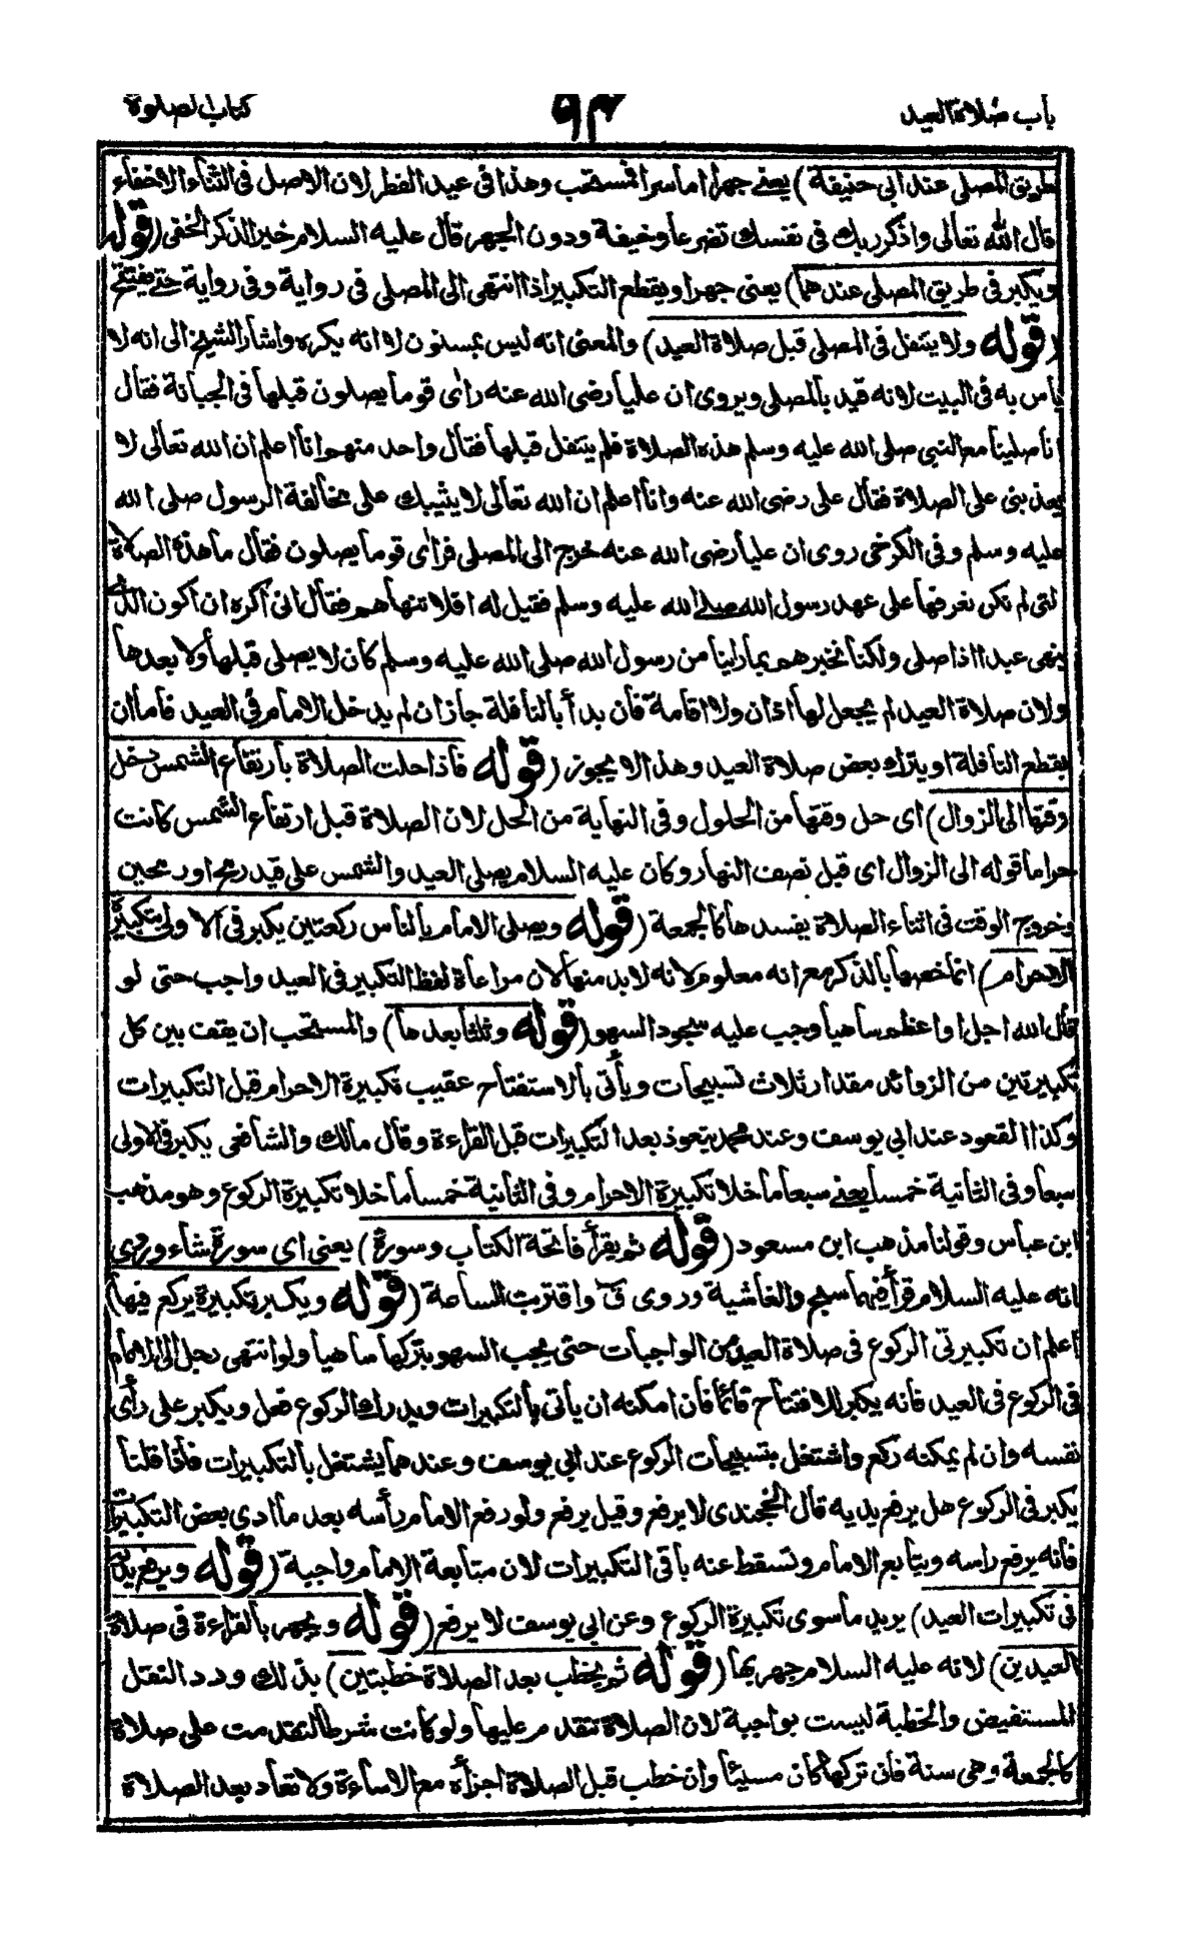 باب صلاة العيد
٩٣
كتاب الصلوة
طريق المصلى عند ابى حنيفة) يعنى جهرا اما سرا فمستحب وهذا فى عيد الفطر لان الاصل فى الثناء الاخفاء
قال الله تعالى واذكر ربك فى نفسك تضرعا وخيفة ودون الجهر قال عليه السلام خير الذكر الخفى (قوله
ويكبر فى طريق المصلى عندهما) يعنى جهرا ويقطع التكبير اذا انتهى الى المصلى فى رواية وفى رواية حتى يفتتح
(قوله ولا يتنفل فى المصلى قبل صلاة العيد) والمعنى انه ليس بمسنون لا انه يكره واشار الشيخ الى انه لا
بأس به فى البيت لانه قيد بالمصلى ويروى ان عليا رضى الله عنه رأى قوما يصلون قبلها فى الجبانة فقال
انا صلينا مع النبى صلى الله عليه وسلم هذه الصلاة فلم يتنفل قبلها فقال واحد منهم وانا اعلم ان الله تعالى لا
يعذبنى على الصلاة فقال على رضى الله عنه وانا اعلم ان الله تعالى لا يثيبك على مخالفة الرسول صلى الله
عليه وسلم وفى الكرخى روى ان عليا رضى الله عنه خرج الى المصلى فرأى قوما يصلون فقال ما هذه الصلاة
لتى لم نكن نعرفها على عهد رسول الله صلى الله عليه وسلم فقيل له افلا تنهاهم فقال انى اكره ان اكون الذى
ينهى عبدا اذا صلى ولكنا نخبرهم بما رأينا من رسول الله صلى الله عليه وسلم كان لا يصلى قبلها ولا بعدها
ولان صلاة العيد لم يجعل لها اذان ولا اقامة فان بدأ بالنافلة جاز ان لم يدخل الامام فى العيد فاما ان
يقطع النافلة او يترك بعض صلاة العيد وهذا لا يجوز (قوله فاذا حلت الصلاة بارتفاع الشمس دخل
وقتها الى الزوال) اى حل وقتها من الحلول وفى النهاية من الحل لان الصلاة قبل ارتفاع الشمس كانت
حراما قوله الى الزوال اى قبل نصف النهار وكان عليه السلام يصلى العيد والشمس على قيد رمح او رمحين
وخروج الوقت فى اثناء الصلاة يفسدها كالجمعة (قوله ويصلى الامام بالناس ركعتين يكبر فى الاولى تكبيرة
الاحرام) انما خصها بالذكر مع انه معلوم لانه لا بد منها لان مراعاة لفظ التكبير فى العيد واجب حتى لو
قال الله اجل او اعظم ساهيا وجب عليه سجود السهو (قوله وثلثا بعدها) والمستحب ان يقف بين كل
تكبيرتين من الزوائد مقدار ثلاث تسبيحات ويأتى بالاستفتاح عقيب تكبيرة الاحرام قبل التكبيرات
وكذا القعود عند ابى يوسف وعند محمد يتعوذ بعد التكبيرات قبل القراءة وقال مالك والشافعى يكبر فى الاولى
سبعا وفى الثانية خمسا يعنى سبعا ما خلا تكبيرة الاحرام وفى الثانية خمسا ما خلا تكبيرة الركوع وهو مذهب
ابن عباس وقولنا مذهب ابن مسعود (قوله ثم يقرأ فاتحة الكتاب وسورة) يعنى اى سورة شاء وروى
انه عليه السلام قرأ فيهما سبح والغاشية وروى ق واقتربت الساعة (قوله ويكبر تكبيرة يركع فيها)
اعلم ان تكبيرتى الركوع فى صلاة العيد من الواجبات حتى يجب السهو بتركها ساهيا ولو انتهى رجل الى الامام
فى الركوع فى العيد فانه يكبر للافتتاح قائما فان امكنه ان يأتى بالتكبيرات ويدرك الركوع فعل ويكبر على رأى
نفسه وان لم يمكنه ركع واشتغل بتسبيحات الركوع عند ابى يوسف وعندهما يشتغل بالتكبيرات فاذا قلنا
يكبر فى الركوع هل يرفع يديه قال الخجندى لا يرفع وقيل يرفع ولو رفع الامام رأسه بعد ما ادى بعض التكبيرات
فانه يرفع راسه ويتابع الامام وتسقط عنه باقى التكبيرات لان متابعة الامام واجبة (قوله ويرفع يديه
فى تكبيرات العيد) يريد ما سوى تكبيرة الركوع وعن ابى يوسف لا يرفع (قوله ويجهر بالقراءة فى صلاة
العيدين) لانه عليه السلام جهر بها (قوله ثم يخطب بعد الصلاة خطبتين) بذلك ورد النقل
المستفيض والخطبة ليست بواجبة لان الصلاة تتقدم عليها ولو كانت شرطا لتقدمت على صلاة
كالجمعة وهى سنة فان تركها كان مسيئا وان خطب قبل الصلاة اجزأه مع الاساءة ولا تعاد بعد الصلاة